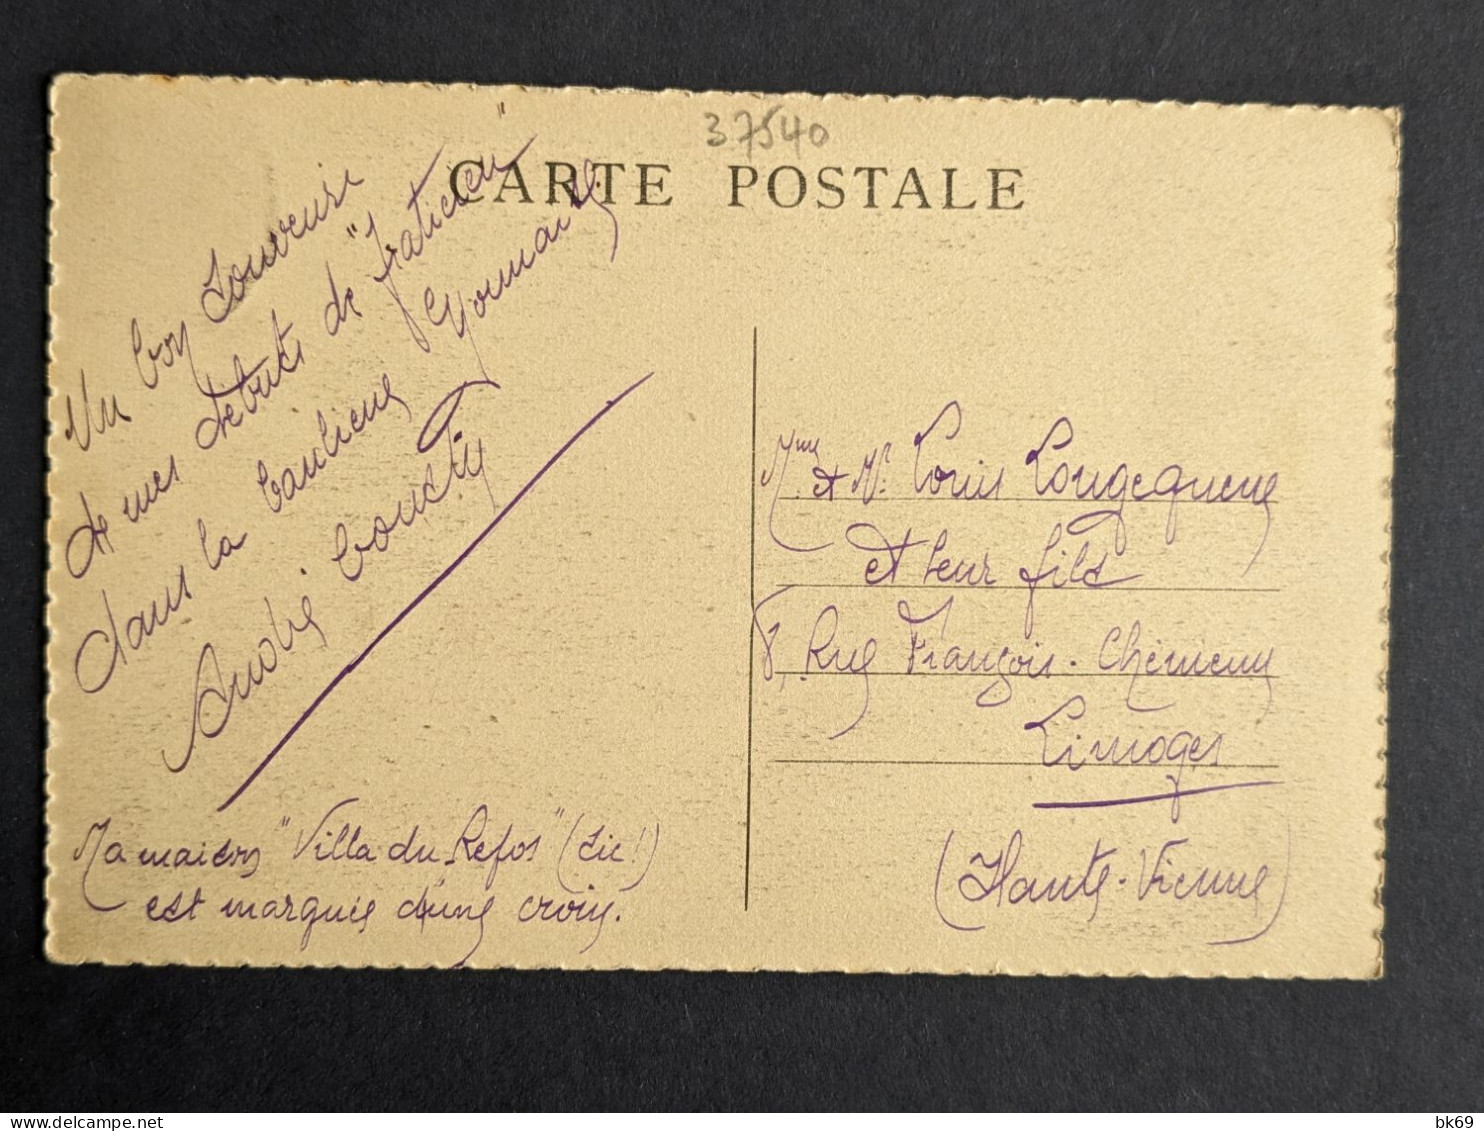 37540
CARTE POSTALE
Un bon Souvenir
de mes débuts de "praticien"
dans la banlieue Lyonnaise
André
Ma maison "Villa du Repos" (Sic!)
est marquée d'une croix.
Mme et Mr. Louis Longequeue
et leur fils
8, Rue François-Chénieux
Limoges
(Haute-Vienne)
bk69